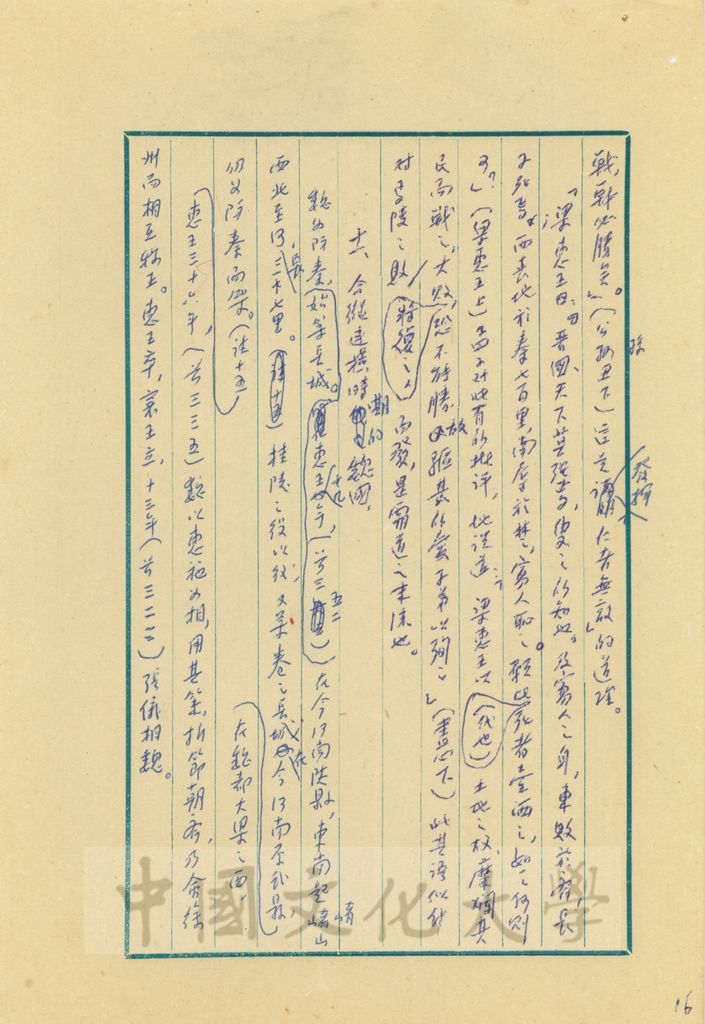 戰,戰必勝矣。」(公孫丑下)這是發揮「仁者無敵」的道理。
「梁惠王曰:「晉國,天下莫强焉,叟之所知也。及寡人之身,東敗於齊,長
子死焉;西喪地於秦七百里,南辱於楚,寡人恥之。願比死者壹洒之,如之何則
可?」(梁惠王上)孟子對此有所批評,他說道:「梁惠王以土地之故,糜爛其
民而戰之,大敗,將復之,恐不能勝,故驅其所愛子弟以殉之。」(盡心下)此其語似針
對馬陵之敗而發,是霸道之末流也。
十一、合縱連橫時期的魏國
魏為防秦,始築長城。惠王十九年,(前三五二)在今河南陝縣,東南起崤山
西北至河,長三十七里。桂陵之役以後,又築卷之長城,在今河南原武縣,在魏都大梁之西,
仍為防秦而築。(註十五)
惠王三十六年,(前三三五)魏以惠施為相,用其策,折節朝齊,乃會徐
州而相互稱王。惠王卒,襄王立,十三年(前三二二)張儀相魏。
16
中國文化大學